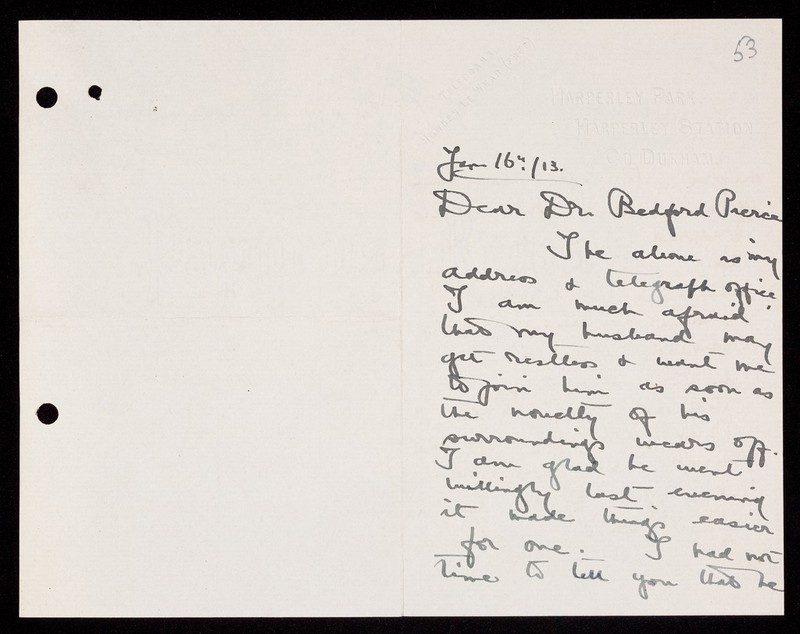 53
HARPERLEY PARK.
HARPERLEY STATION
CO. DURHAM.
Jan 16th/13.
Dear Dr. Bedford Pierce
The above is my
address & telegraph office
I am much afraid
that my husband may
get restless & want me
to join him as soon as
the novelty of his
surroundings wears off.
I am glad he went
willingly last evening
it made things easier
for one. I had not
time to tell you that he